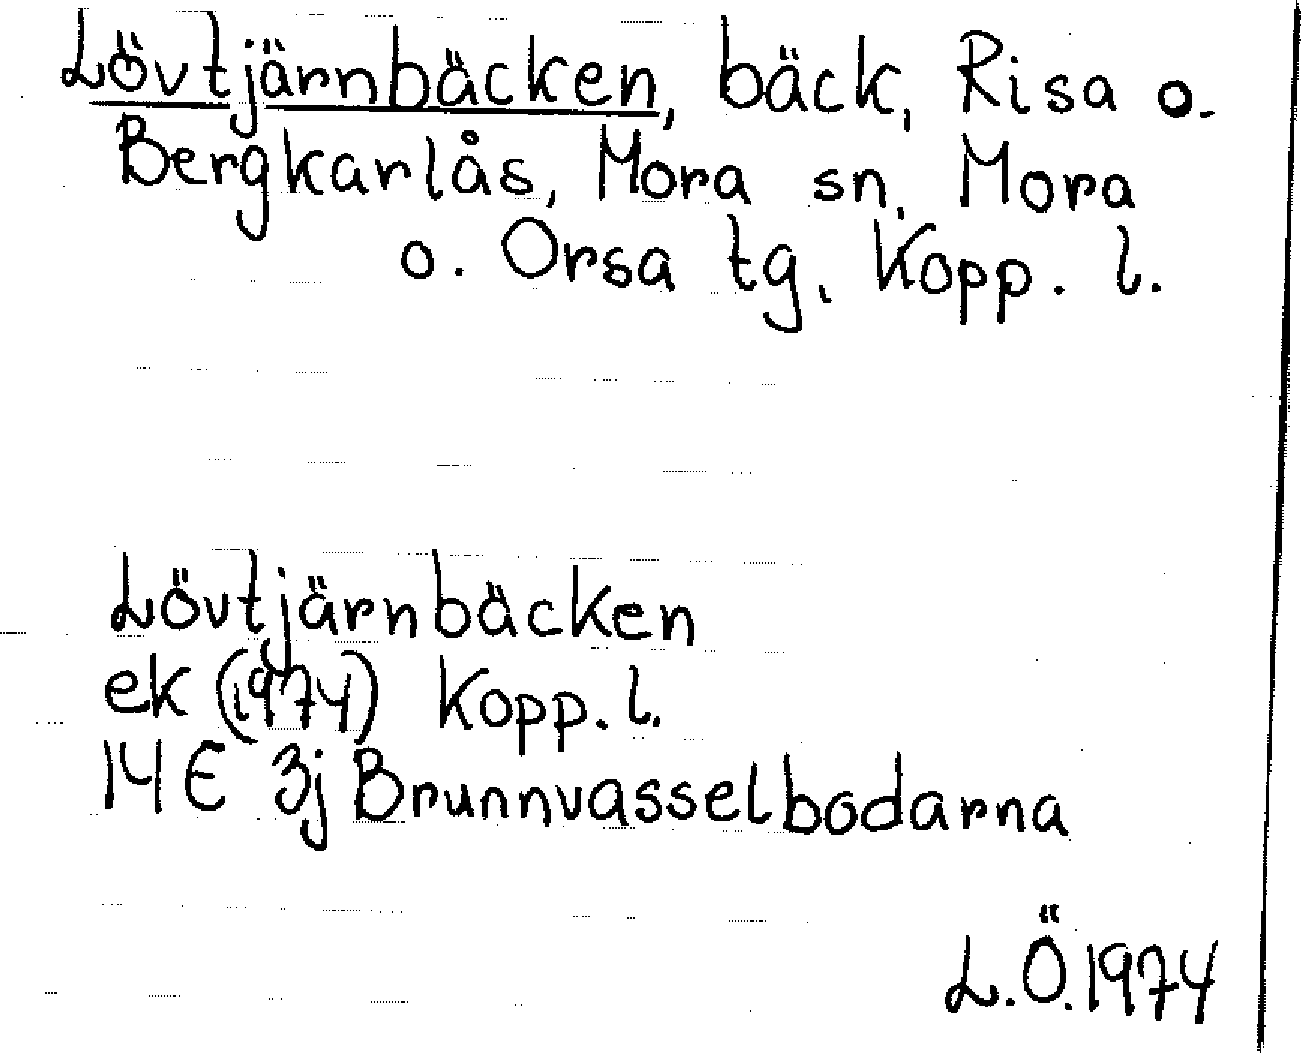 Lövtjärnbäcken, bäck, Risa o.
Bergkarlås, Mora sn, Mora
o. Orsa tg, Kopp. l.
Lövtjärnbäcken
ek (1974) Kopp. l.
14E 3j Brunnvasselbodarna
L.Ö. 1974